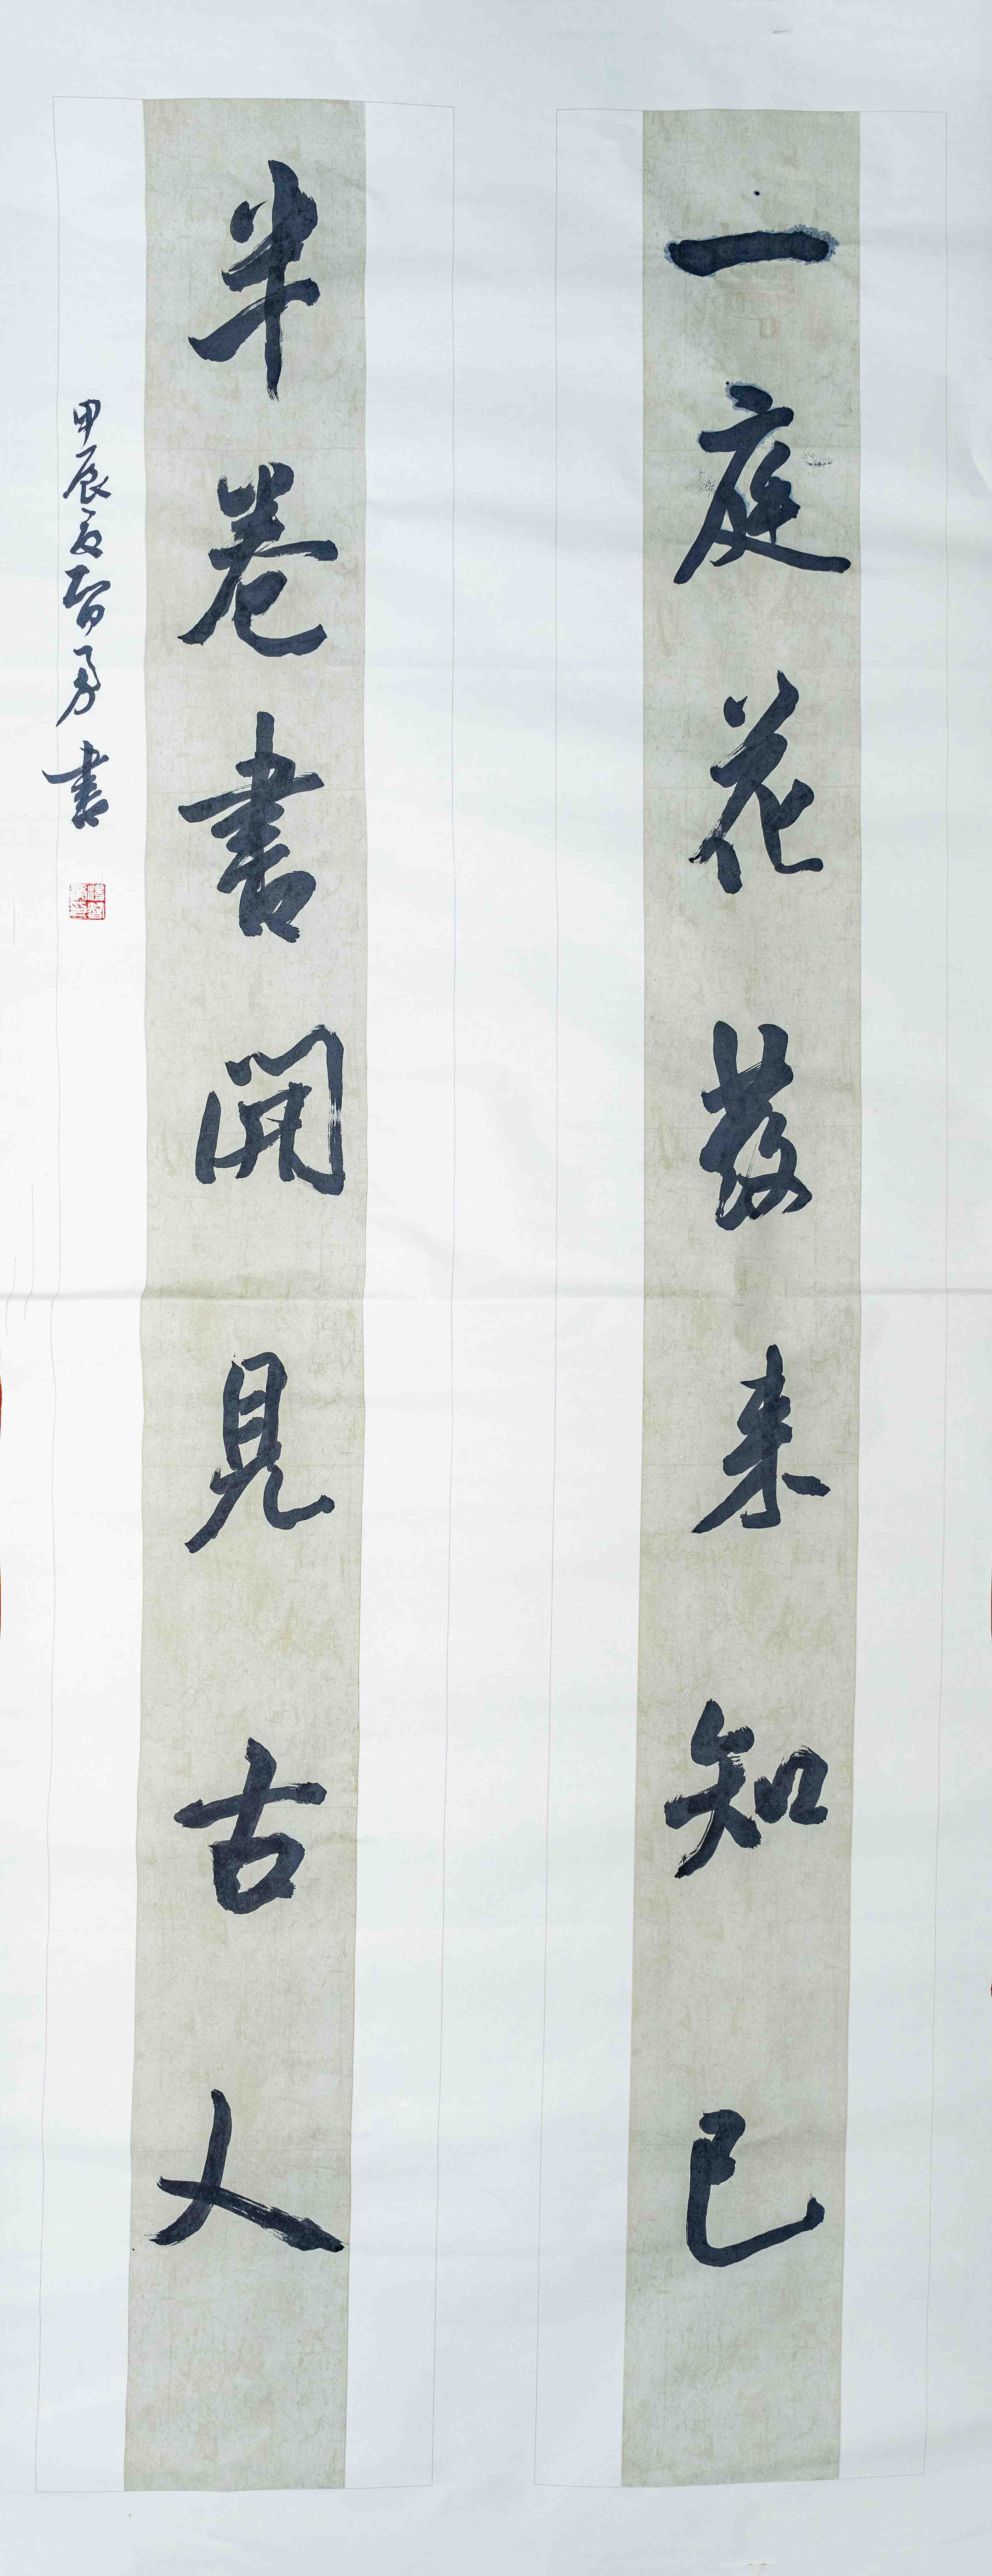 一庭花發来知己
半卷書開見古人
甲辰夏智勇書